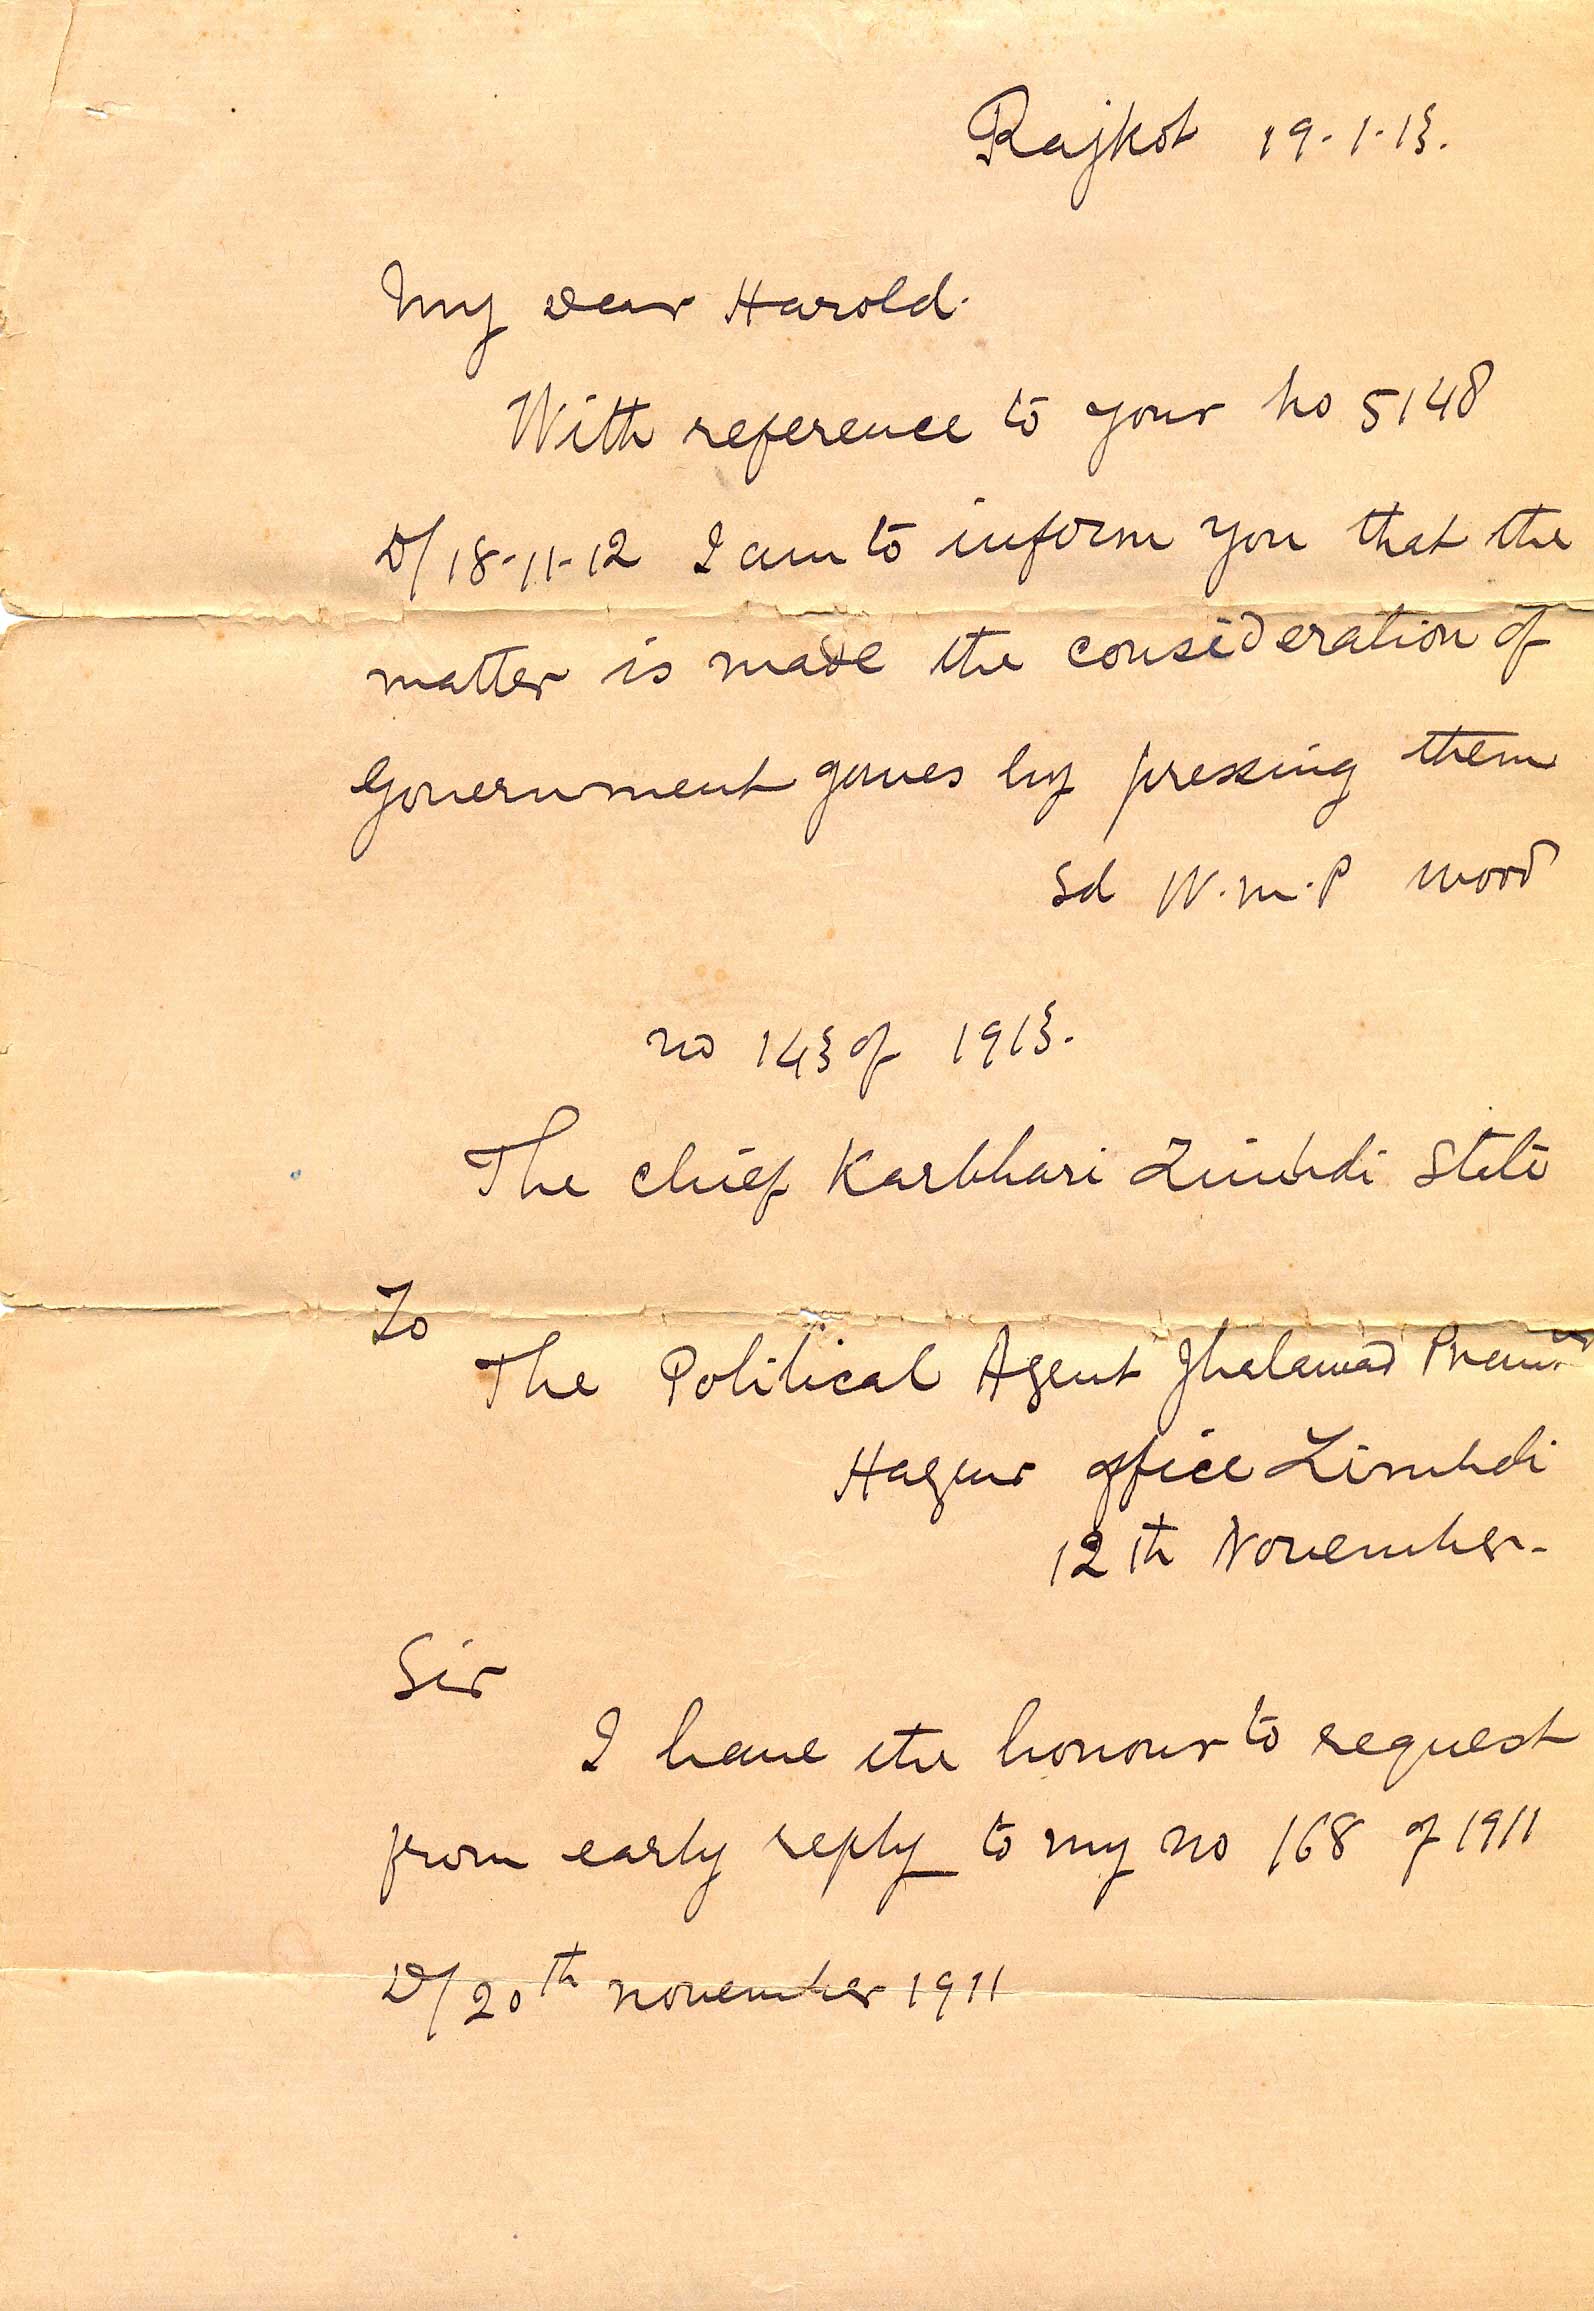 Rajkot 19-1-13.
My dear Harold.
With reference to your no 5148
D/ 18-11-12 I am to inform you that the
matter is made the consideration of
Government by pressing them
Sd W.M.P Wood
no 143 of 1913.
The Chief Karbhari Limbdi State
To
The Political Agent Jhalawad
Hazur office Limbdi
12th November.
Sir
I have the honour to request
from early reply to my no 168 of 1911
D/ 20th november 1911